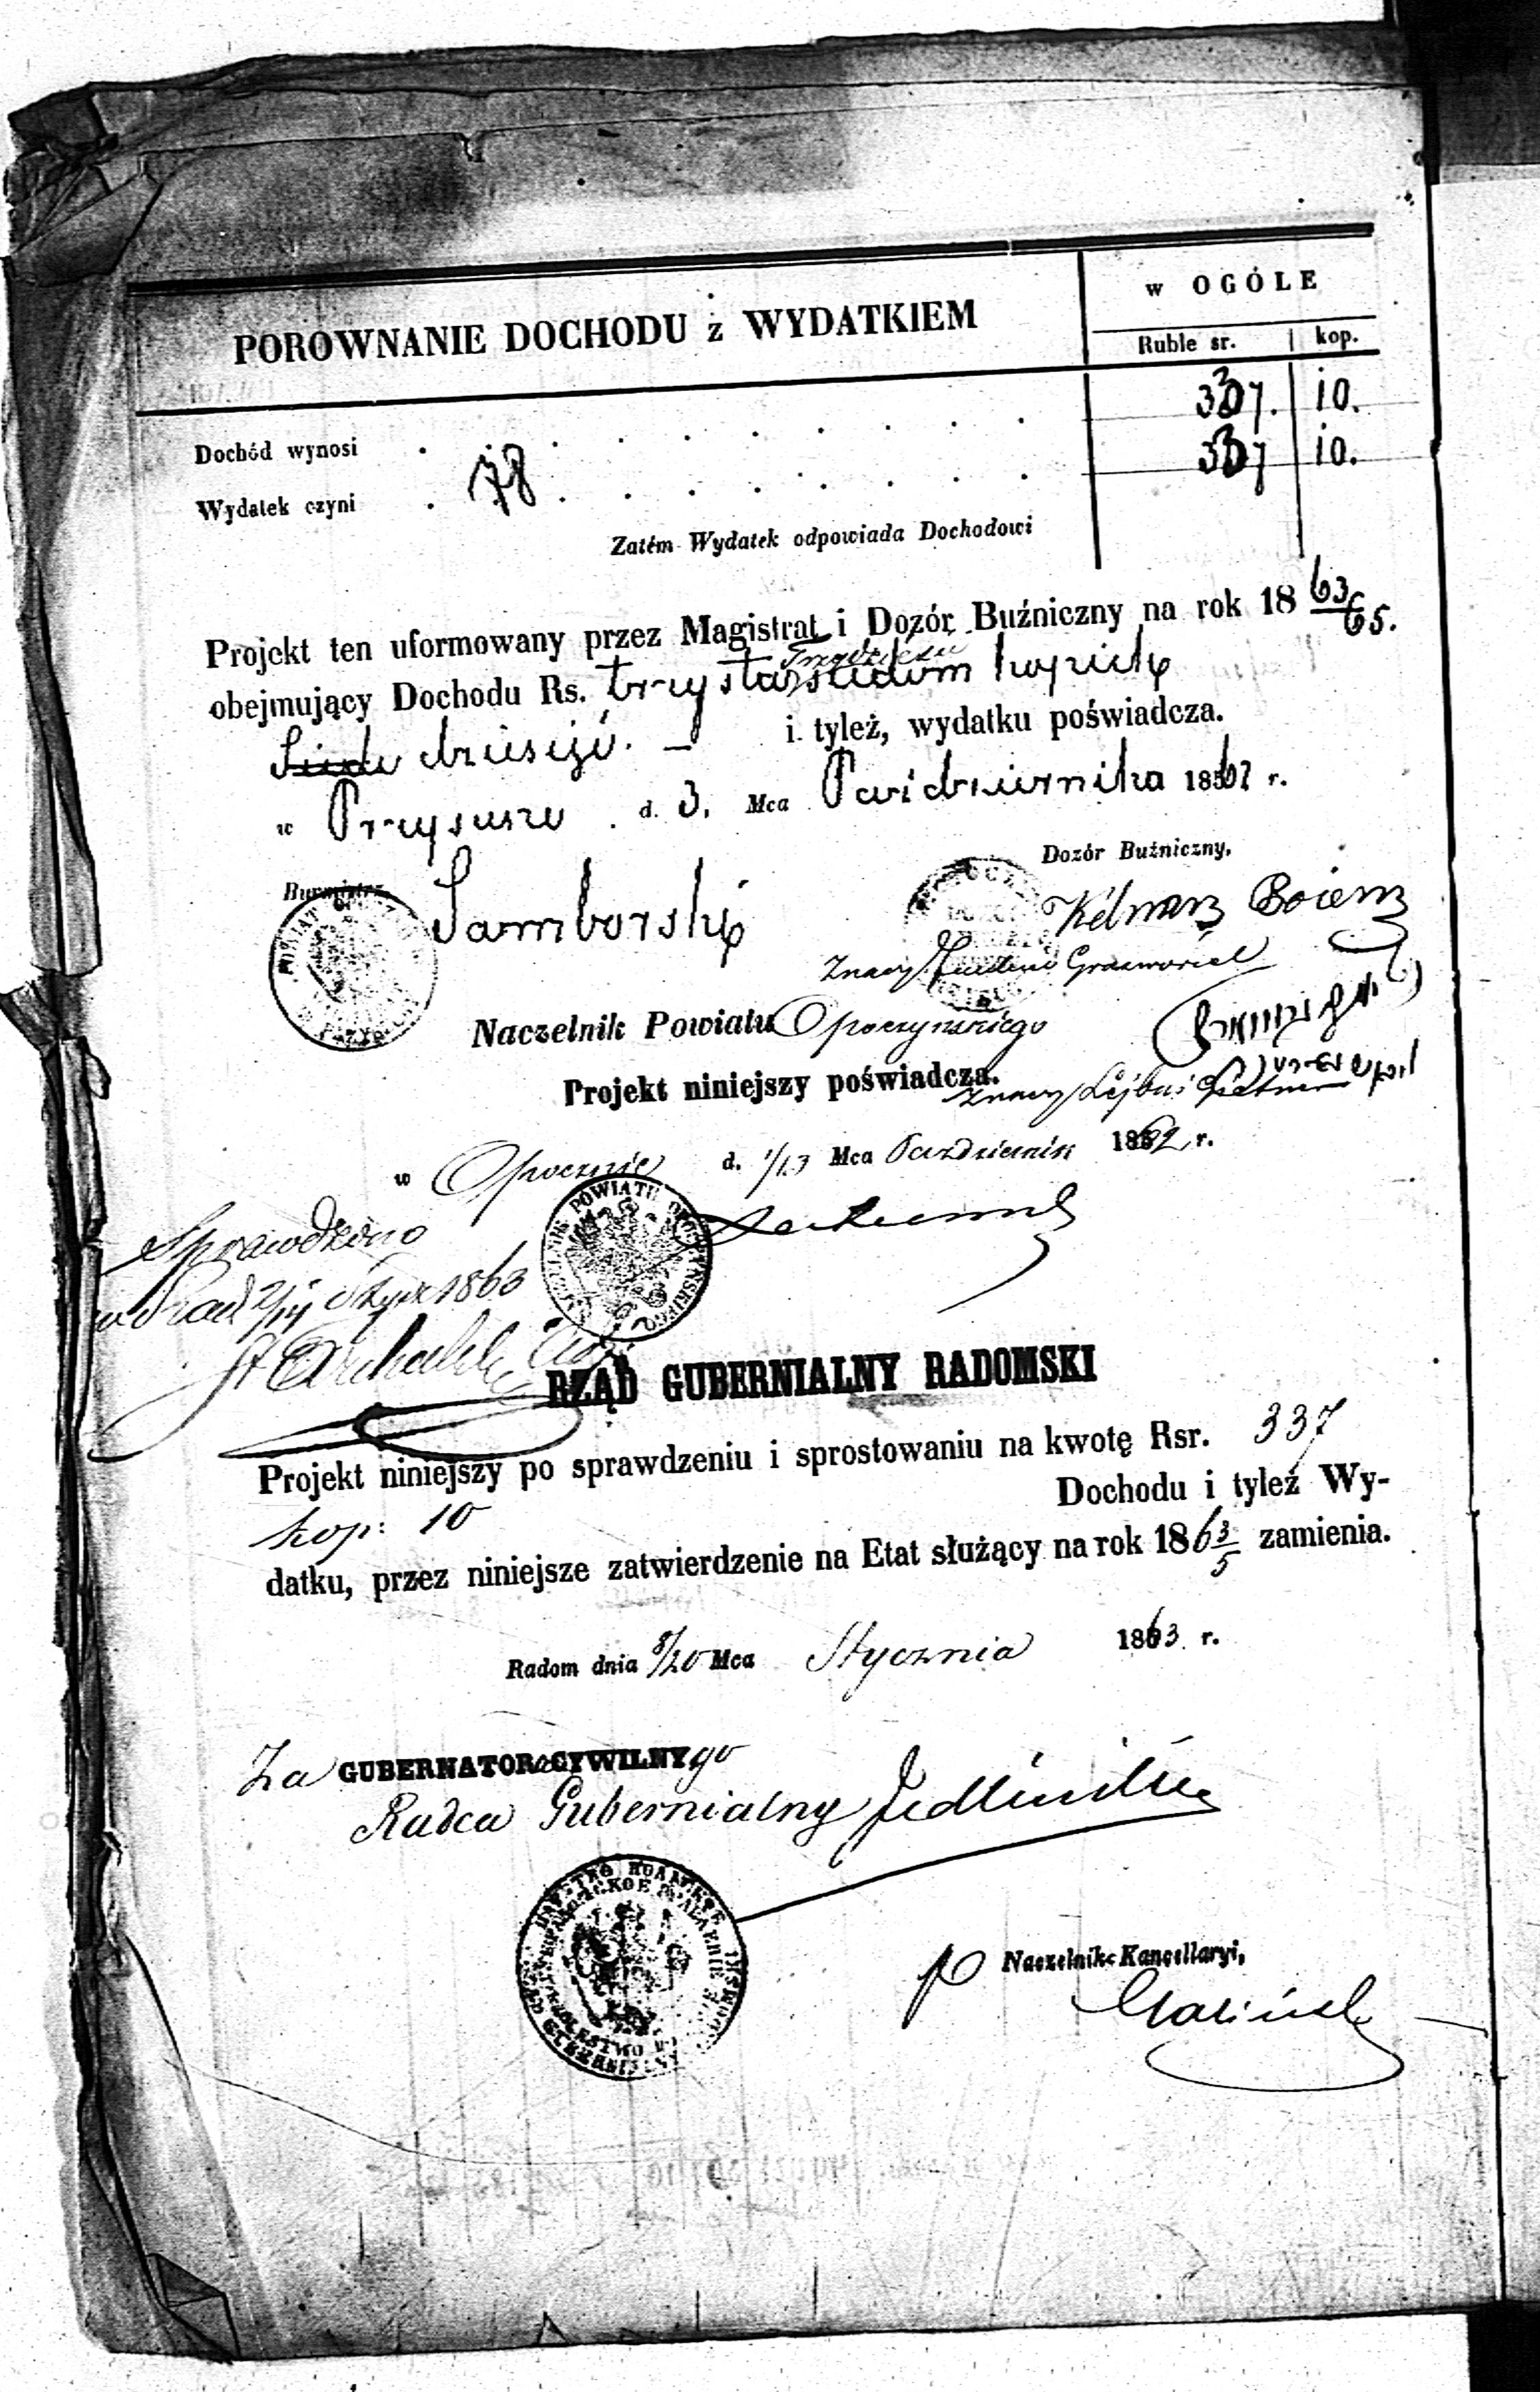 PORÓWNANIE DOCHODU z WYDATKIEM
w OGÓLE
Ruble sr. kop.
Dochód wynosi 337. 10.
Wydatek czyni 337 10.
78
Zatém Wydatek odpowiada Dochodowi
Projekt ten uformowany przez Magistrat i Dozór Buźniczny na rok 1863/65.
trzydzieści
obejmujący Dochodu Rs. trzysta siedem kopiejk
dziesięć. — i tyleż, wydatku poświadcza.
w Przysusze d. 3. Mca Października 1862 r.
Burmistrz Samborski
Dozór Buźniczny,
Kelman Boiem
Znaczy
Naczelnik Powiatu Opoczyńskiego
Projekt niniejszy poświadcza.
Znaczy Lejbuś
w Opocznie d. 1/13 Mca Październik 1862 r.
NACZELNIK POWIATU OPOCZYŃSKIEGO
Sprawdzono
w Rad 2/14 Stycz 1863
RZĄD GUBERNIALNY RADOMSKI
Projekt niniejszy po sprawdzeniu i sprostowaniu na kwotę Rsr. 337
kop: 10 Dochodu i tyleż Wy-
datku, przez niniejsze zatwierdzenie na Etat służący na rok 1863/5 zamienia.
Radom dnia 8/20 Mca Stycznia 1863 r.
Za GUBERNATORA CYWILNYgo
Radca Gubernialny
p Naczelnik Kancellaryi,